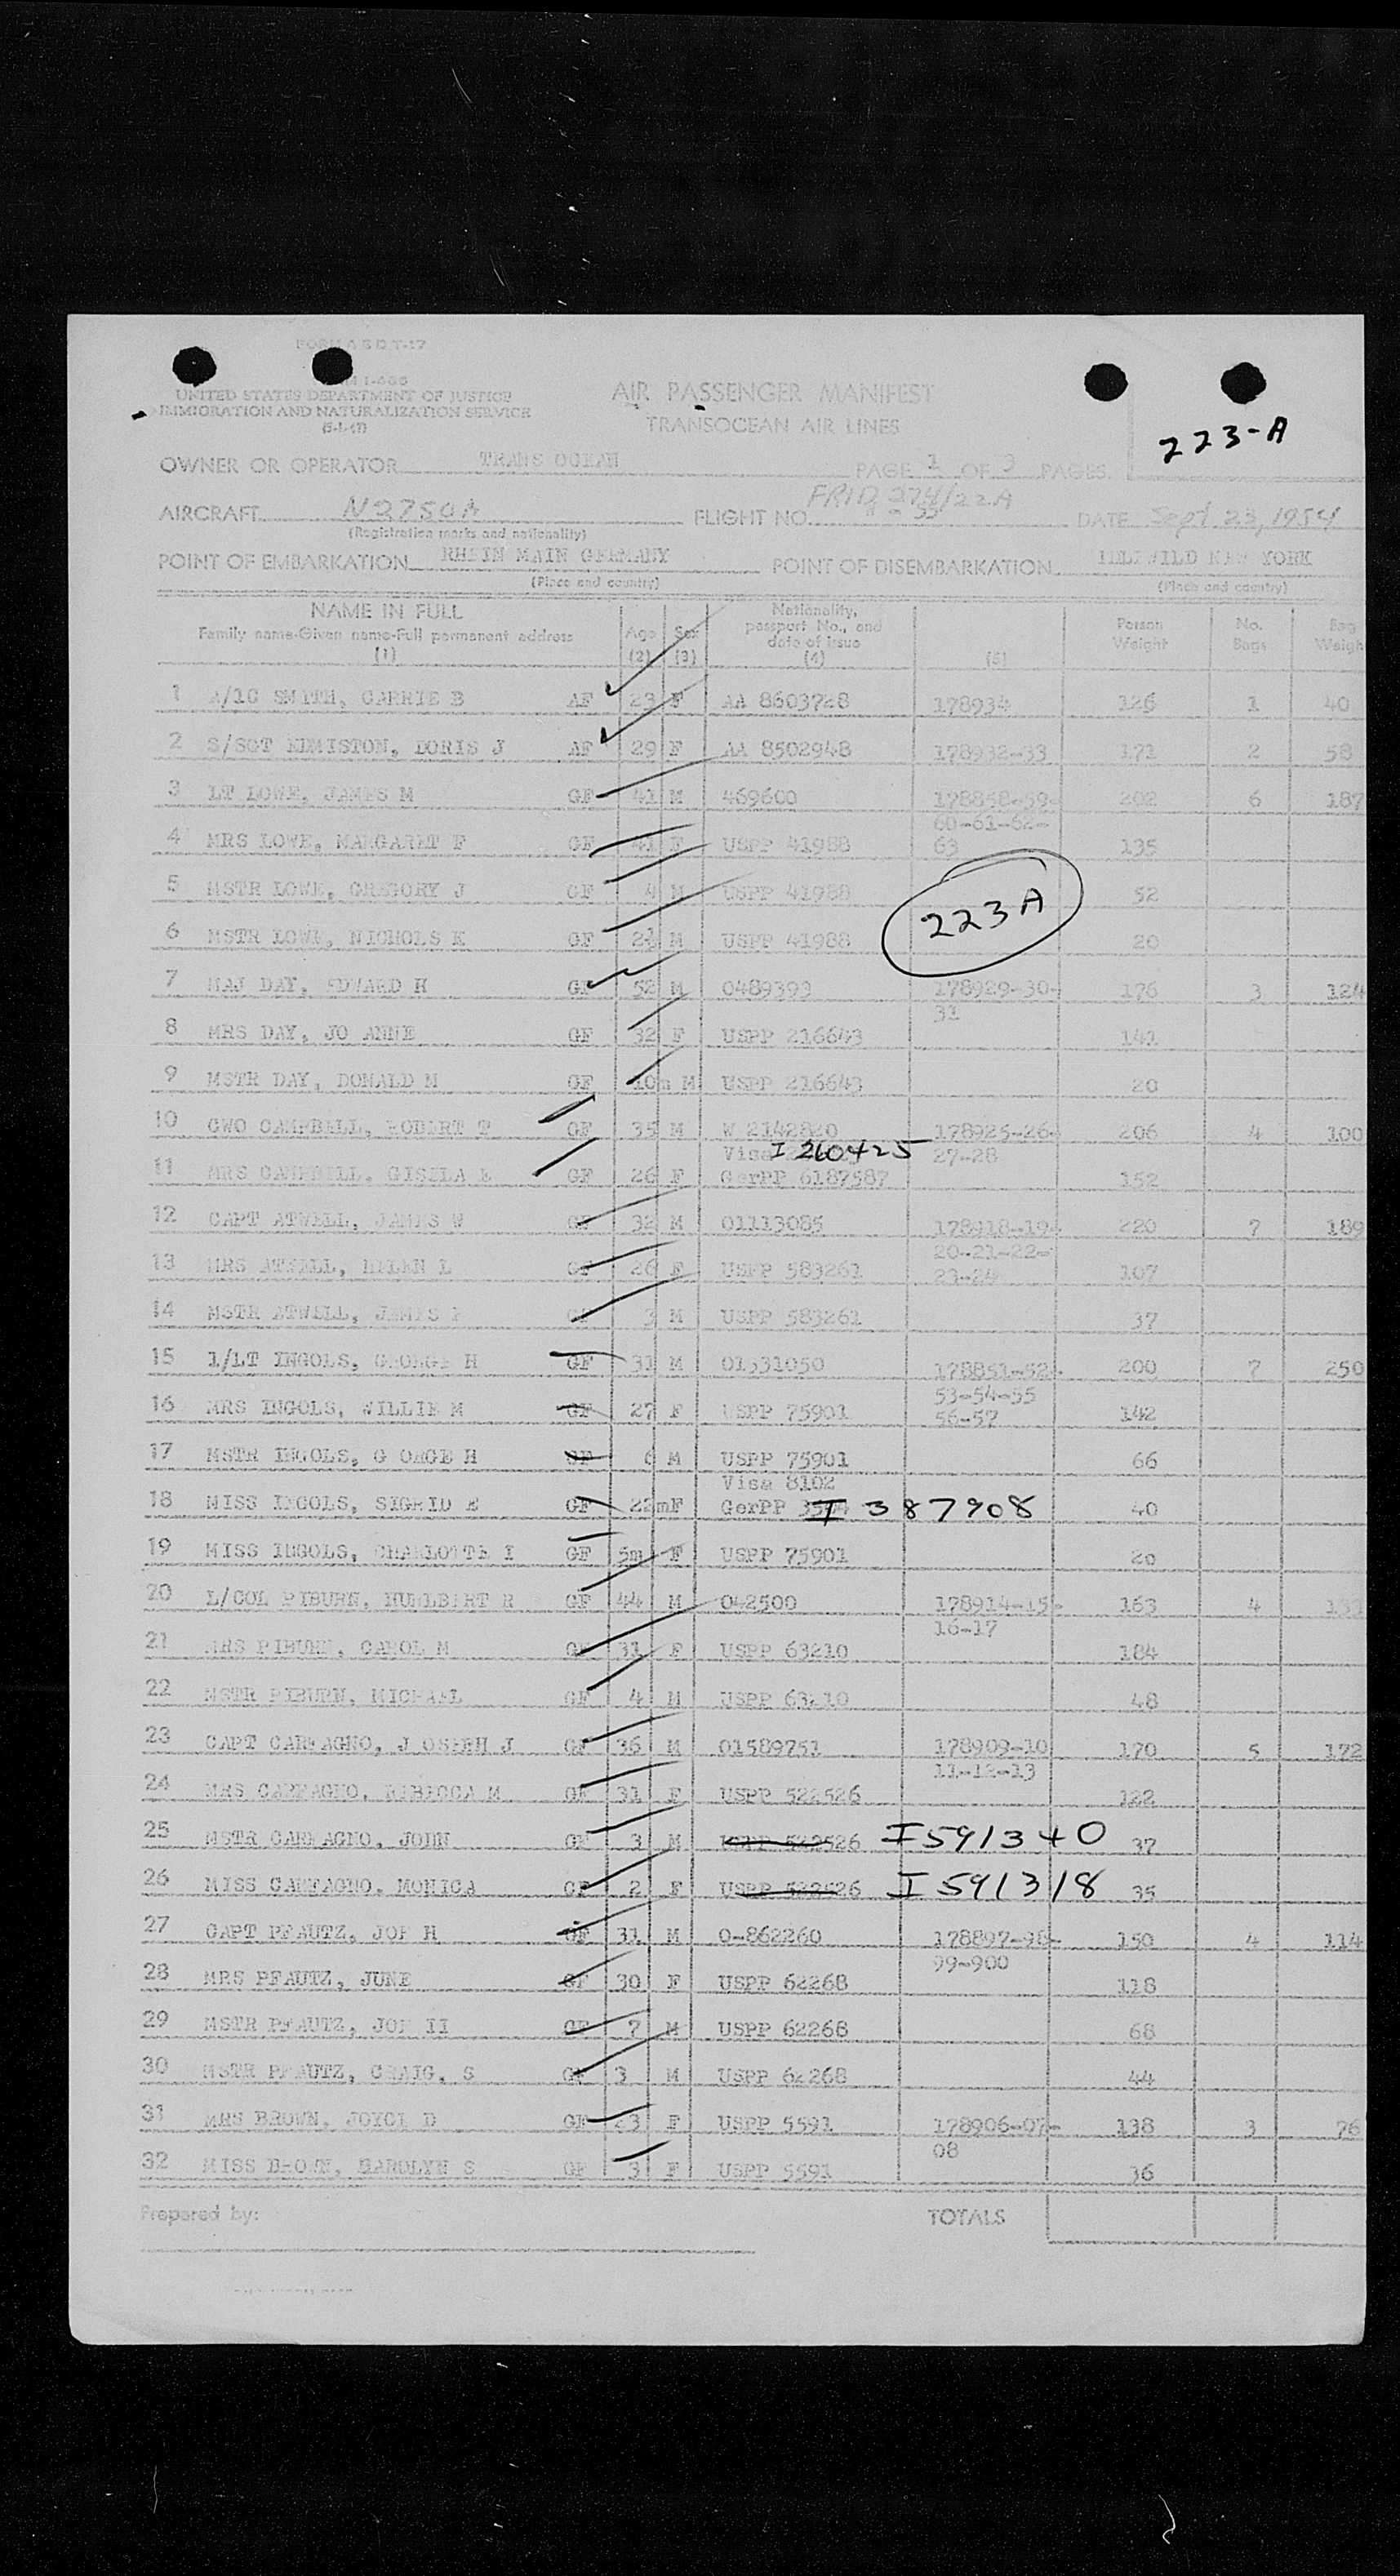 FORM A S D T-17
UNITED STATES DEPARTMENT OF JUSTICE
IMMIGRATION AND NATURALIZATION SERVICE
AIR PASSENGER MANIFEST
TRANSOCEAN AIR LINES
223-A
OWNER OR OPERATOR TRANS OCEAN PAGE 1 OF 3 PAGES
AIRCRAFT N2750A FLIGHT NO. FRID 274/22A DATE Sept 23, 1954
(Registration marks and nationality)
POINT OF EMBARKATION RHEIN MAIN GERMANY POINT OF DISEMBARKATION NEW YORK
(Place and country) (Place and country)
NAME IN FULL Family name-Given name-Full permanent address (1) Age (2) Sex (3) Nationality, passport No., and date of issue (4) (5) Person Weight No. Bags Bag Weigh
1 A/1C SMITH, CARRIE B AF 23 F AA 8603728 178934 126 1 40
2 S/SGT EDMISTON, DORIS J AF 29 F AA 8502948 178932-33 171 2 58
3 LT LOWE, JAMES M GF 41 M 469600 178858-59- 202 6 187
60-61-62-
4 MRS LOWE, MARGARET F GF 41 F USPP 41988 63 135
5 MSTR LOWE, GREGORY J GF 4 M USPP 41988 52
223A
6 MSTR LOWE, NICHOLS K GF 2½ M USPP 41988 20
7 MAJ DAY, EDWARD H GF 52 M 0489393 178929-30- 176 3 124
31
8 MRS DAY, JO ANNE GF 32 F USPP 216643 141
9 MSTR DAY, DONALD M GF 10m M USPP 216643 20
10 CWO CAMPBELL, ROBERT T GF 35 M W 2142820 178925-26- 206 4 100
Visa I 260425 27-28
11 MRS CAMPBELL, GISELA E GF 26 F GerPP 6187587 152
12 CAPT ATWELL, JAMES W GF 32 M 01113085 178918-19- 220 7 189
20-21-22-
13 MRS ATWELL, HELEN L GF 26 F USPP 583261 23-24 107
14 MSTR ATWELL, JAMES GF 3 M USPP 583261 37
15 1/LT INGOLS, GEORGE H GF 31 M 01331050 178851-52- 200 7 250
53-54-55
16 MRS INGOLS, WILLIE M GF 27 F USPP 75901 56-57 142
17 MSTR INGOLS, G ORGE H GF 6 M USPP 75901 66
Visa 8102
18 MISS INGOLS, SIGRID E GF 22m F GerPP I 387908 40
19 MISS INGOLS, CHARLOTTE I GF 5m F USPP 75901 20
20 L/COL PIBURN, HURLBERT R GF 44 M 042500 178914-15- 163 4 131
16-17
21 MRS PIBURN, CAROL M GF 31 F USPP 63210 184
22 MSTR PIBURN, MICHAEL GF 4 M USPP 63210 48
23 CAPT CARFAGNO, J OSEPH J GF 36 M 01589751 178909-10 170 5 172
11-12-13
24 MRS CARFAGNO, REBECCA M GF 31 F USPP 522526 122
25 MSTR CARFAGNO, JOHN GF 3 M USPP 522526 I591340 37
26 MISS CARFAGNO, MONICA GF 2 F USPP 522526 I591318 35
27 CAPT PFAUTZ, JOE H GF 31 M O-862260 178897-98- 150 4 114
99-900
28 MRS PFAUTZ, JUNE GF 30 F USPP 62268 118
29 MSTR PFAUTZ, JOE II GF 7 M USPP 62268 68
30 MSTR PFAUTZ, CRAIG, S GF 3 M USPP 62268 44
31 MRS BROWN, JOYCE D GF 23 F USPP 5591 178906-07- 138 3 76
08
32 MISS BROWN, S GF 3 F USPP 5591 36
Prepared by: TOTALS